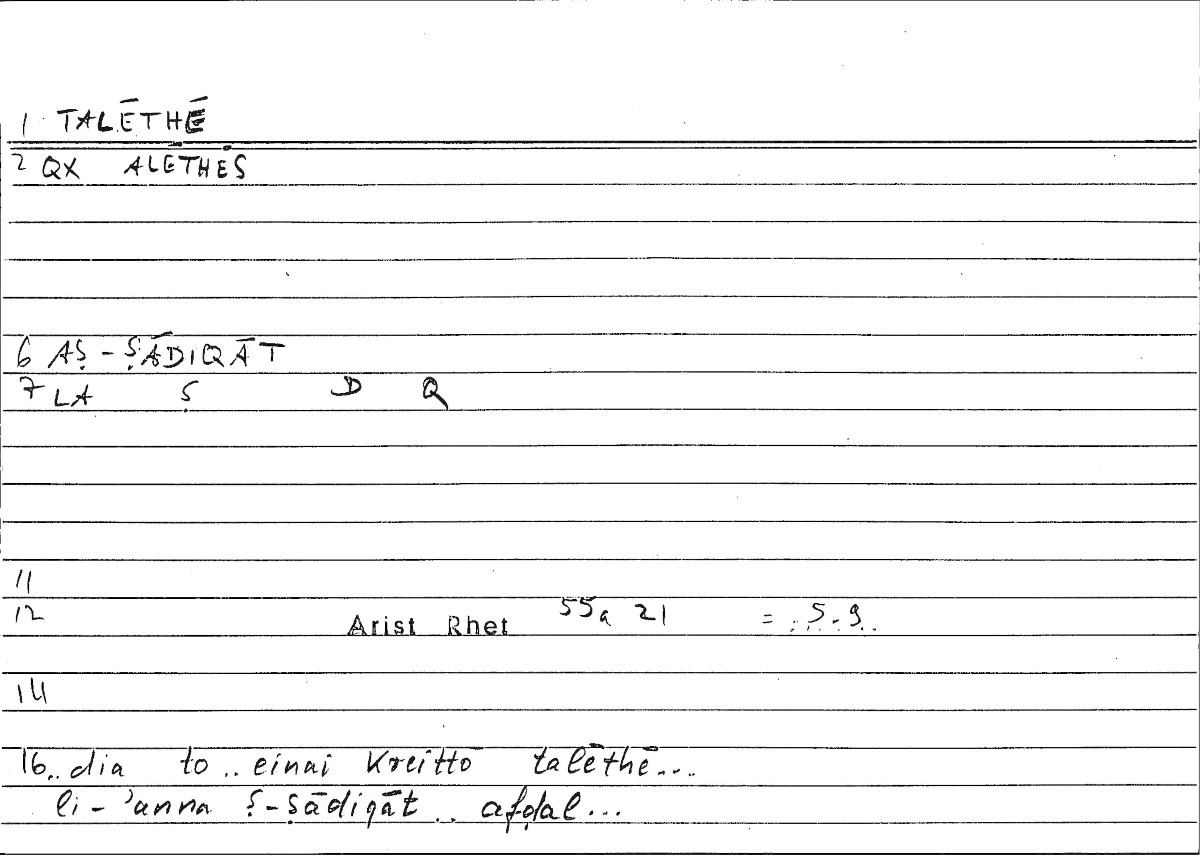 1 TALĒTHĒ
2 QX ALĒTHĒS
6 AṢ-ṢĀDIQĀT
7 LA Ṣ D Q
11
12 Arist Rhet 55a 21 = 5.9
14
16 .. dia to .. einai kreittō talēthē...
li-'anna ṣ-ṣādiqāt .. afḍal...